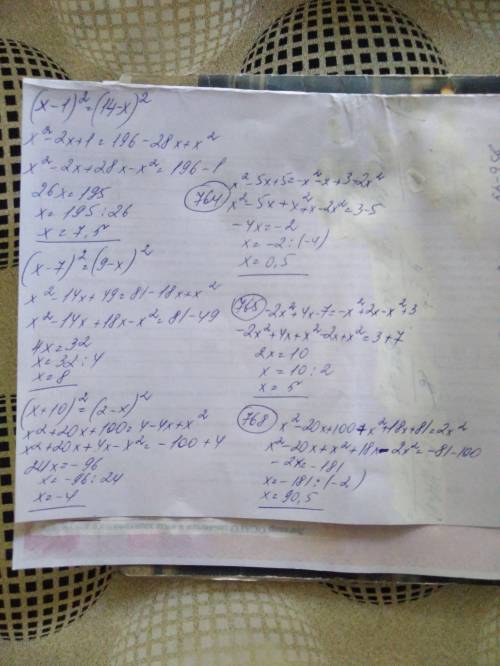 (x-1)²=(14-x)²
x²-2x+1=196-28x+x²
x²-2x+28x-x²=196-1
26x=195
x=195:26
x=7,5
(x-7)²=(9-x)²
x²-14x+49=81-18x+x²
x²-14x+18x-x²=81-49
4x=32
x=32:4
x=8
(x+10)²=(2-x)²
x²+20x+100=4-4x+x²
x²+20x+4x-x²=-100+4
24x=-96
x=-96:24
x=-4
764
x²-5x+5=-x²-x+3+2x²
x²-5x+x²+x-2x²=3-5
-4x=-2
x=-2:(-4)
x=0,5
765
-2x²+4x-7=-x²+2x-x²+3
-2x²+4x+x²-2x+x²=3+7
2x=10
x=10:2
x=5
768
x²-20x+100+x²+18x+81=2x²
x²-20x+x²+18x-2x²=-81-100
-2x=-181
x=-181:(-2)
x=90,5